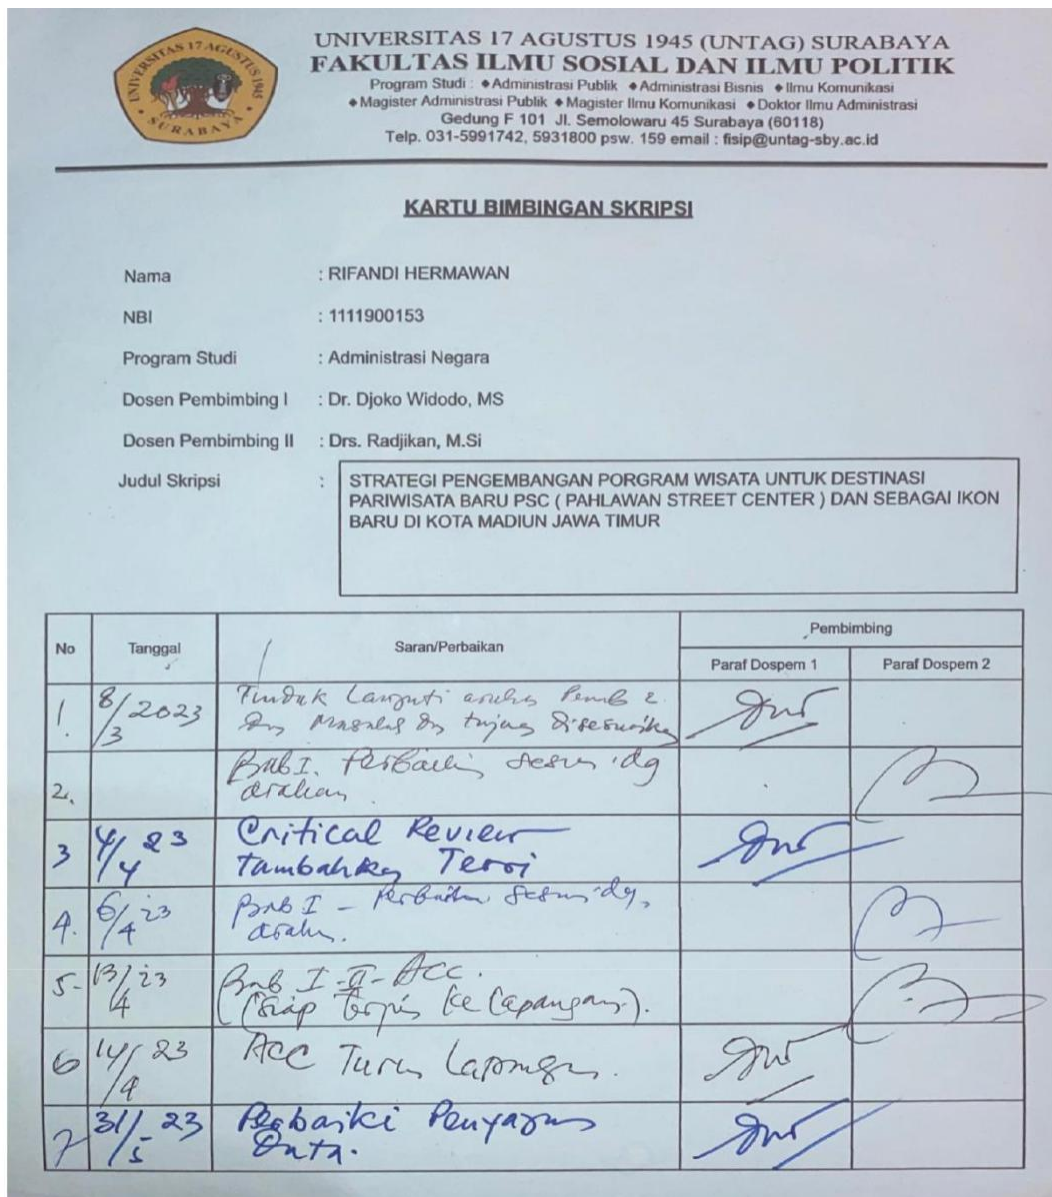 UNIVERSITAS 17 AGUSTUS 1945
SURABAYA
UNIVERSITAS 17 AGUSTUS 1945 (UNTAG) SURABAYA
FAKULTAS ILMU SOSIAL DAN ILMU POLITIK
Program Studi : ◆Administrasi Publik ◆Administrasi Bisnis ◆Ilmu Komunikasi
◆Magister Administrasi Publik ◆Magister Ilmu Komunikasi ◆Doktor Ilmu Administrasi
Gedung F 101 Jl. Semolowaru 45 Surabaya (60118)
Telp. 031-5991742, 5931800 psw. 159 email : fisip@untag-sby.ac.id
KARTU BIMBINGAN SKRIPSI
Nama : RIFANDI HERMAWAN
NBI : 1111900153
Program Studi : Administrasi Negara
Dosen Pembimbing I : Dr. Djoko Widodo, MS
Dosen Pembimbing II : Drs. Radjikan, M.Si
Judul Skripsi : STRATEGI PENGEMBANGAN PORGRAM WISATA UNTUK DESTINASI
PARIWISATA BARU PSC ( PAHLAWAN STREET CENTER ) DAN SEBAGAI IKON
BARU DI KOTA MADIUN JAWA TIMUR
No Tanggal Saran/Perbaikan Pembimbing
Paraf Dospem 1 Paraf Dospem 2
1. 8/3 2023 Tindak Lanjuti Pemb 2.
Masalah tujuan
2. Bab I. dg
arahan
3 4/4 23 Critical Review
Tambahkan Teori
4. 6/4 '23 Bab I - dg,
5- 13/4 '23 Bab I-II-Acc.
(Siap ke Lapangan).
6 14/4 23 ACC Turun Lapangan.
7 31/5 23 Perbaiki Penyajian
Data.